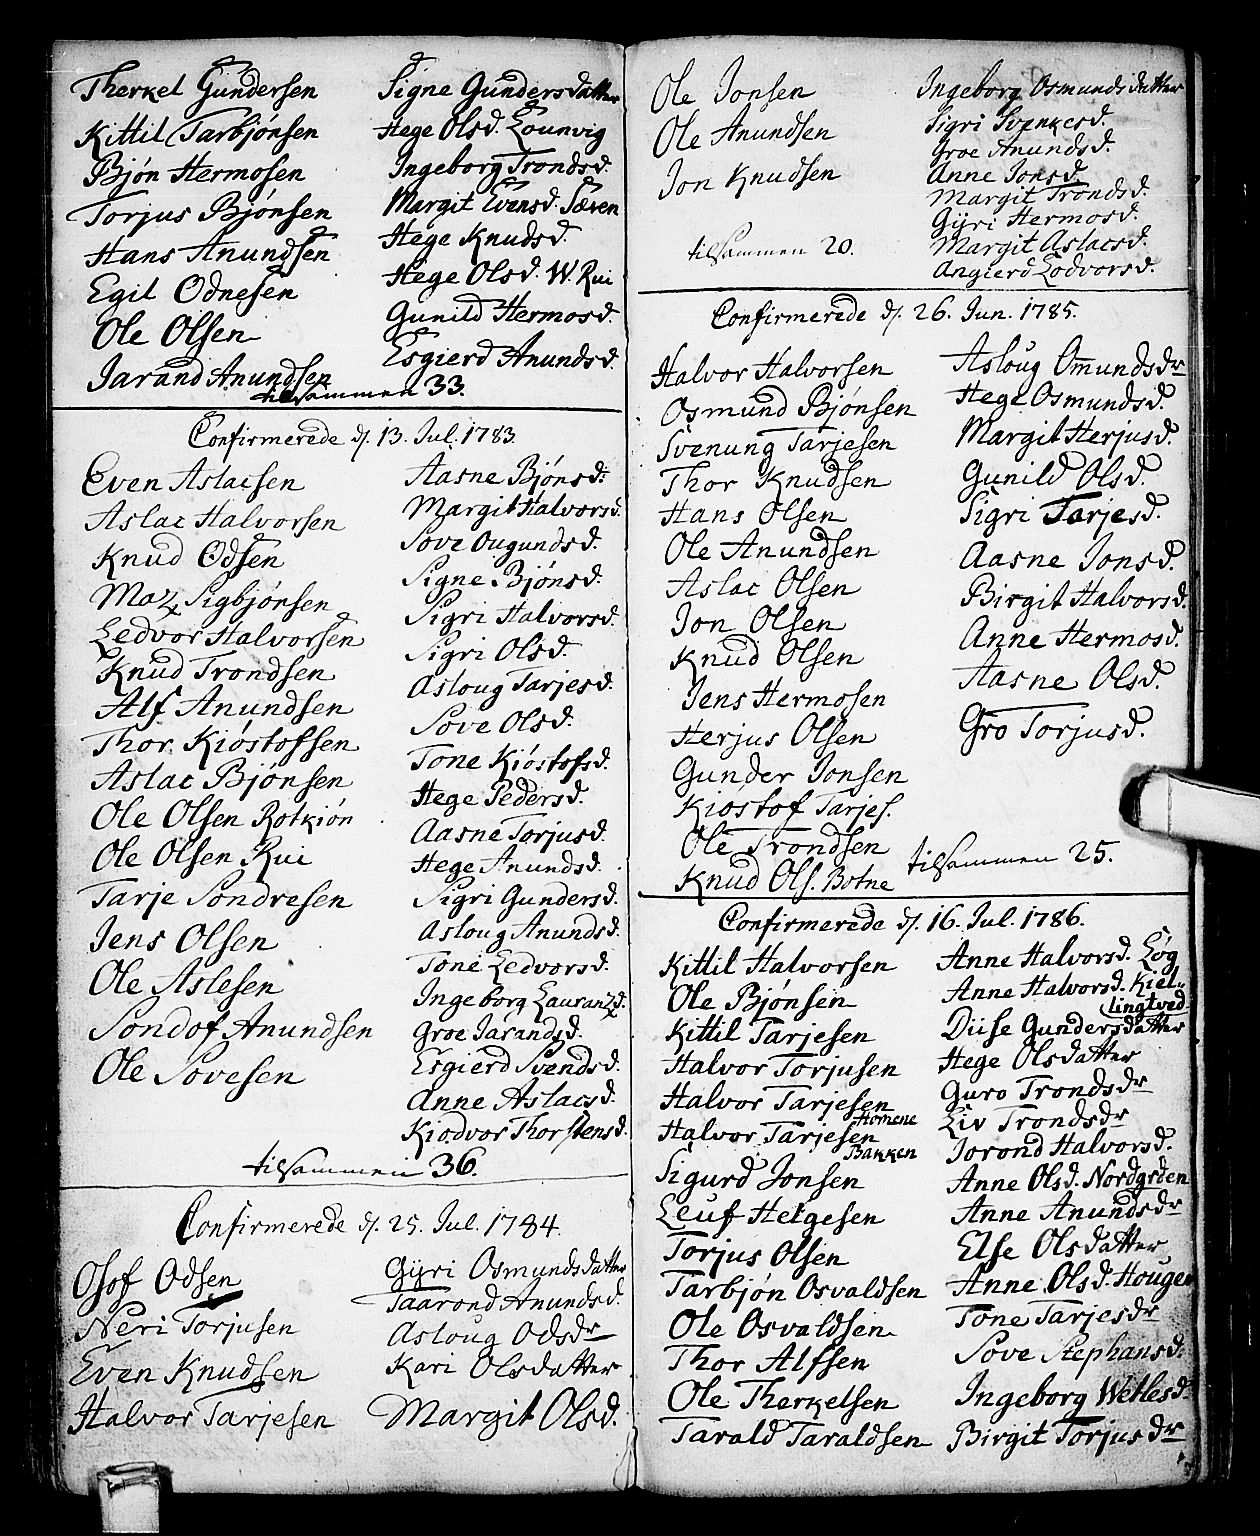 Therkel Gundersen
Kittil Tarbjönsen
Bjön Hermosen
Torjus Bjönsen
Hans Anundsen
Egil Odnesen
Ole Olsen
Jarand Anundsen
Signe Gundersdatter
Hege Olsd. Lounvig
Ingeborg Trondsd.
Margit Evensd. Sæven
Hege Knudsd.
Hege Olsd. W. Rui
Gunild Hermosd.
Esgierd Anundsd.
tilsammen 33.
Confirmerede d. 13. Jul. 1783.
Even Aslacsen
Aslac Halvorsen
Knud Odsen
Maz Sigbjönsen
Ledvor Halvorsen
Knud Trondsen
Alf Anundsen
Thor Kiöstofsen
Aslac Bjönsen
Ole Olsen Rotkiön
Ole Olsen Rui
Tarje Sondresen
Jens Olsen
Ole Aslesen
Sondof Anundsen
Ole Sovesen
Aasne Bjönsd.
Margit Halvorsd.
Sove Ougundsd.
Signe Bjönsd.
Sigri Halvorsd.
Sigri Olsd.
Asloug Tarjesd.
Sove Olsd.
Tone Kiöstofsd.
Hege Pedersd.
Aasne Torjusd.
Hege Anundsd.
Sigri Gundersd.
Asloug Anundsd.
Tone Ledvorsd.
Ingeborg Lauranzd.
Groe Jarandsd.
Esgierd Svendsd.
Anne Aslacsd.
Kiodvor Thorstensd.
tilsammen 36.
Confirmerede d. 25. Jul. 1784.
Osof Odsen
Neri Torjusen
Even Knudsen
Halvor Tarjesen
Gyri Osmundsdatter
Taarond Anundsd.
Asloug Odsdr
Kari Olsdatter
Margit Olsd.
Ole Jonsen
Ole Anundsen
Jon Knudsen
tilsammen 20.
Ingeborg Osmundsdatter
Sigri Svenkesd.
Groe Anundsd.
Anne Jonsd.
Margit Trondsd.
Gyri Hermosd.
Margit Aslacsd.
Angierd Lodvorsd.
Confirmerede d. 26. Jun. 1785.
Halvor Halvorsen
Osmund Bjönsen
Svenung Tarjesen
Thor Knudsen
Hans Olsen
Ole Anundsen
Aslac Olsen
Jon Olsen
Knud Olsen
Jens Hermosen
Herjus Olsen
Gunder Jonsen
Kiostof Tarjes.
Ole Trondsen
Knud Ols. Botne
Asloug Omundsdr
Hege Osmundsd.
Margit Herjusd.
Gunild Olsd.
Sigri Tarjesd.
Aasne Jonsd.
Birgit Halvorsd.
Anne Hermosd.
Aasne Olsd.
Gro Torjusd.
tilsammen 25.
Confirmerede d. 16. Jul. 1786.
Kittil Halvorsen
Ole Bjönsen
Kittil Tarjesen
Halvor Torjusen
Halvor Tarjesen Homene
Halvor Tarjesen Bakken
Sigurd Jonsen
Leuf Helgesen
Torjus Olsen
Tarbjön Osvaldsen
Ole Osvaldsen
Thor Alfsen
Ole Therkelsen
Tarald Taraldsen
Anne Halvorsd. Løg
Anne Halvorsd. Kiel-
lingtved
Diise Gundersdatter
Hege Olsdatter
Guro Trondsdr
Liv Trondsdr
Jorond Halvorsd.
Anne Olsd. Nordgrden
Anne Anundsdr
Else Olsdatter
Anne Olsd. Hougen
Tone Tarjesdr
Sove Stephansd.
Ingeborg Wetlesd.
Birgit Torjusdr